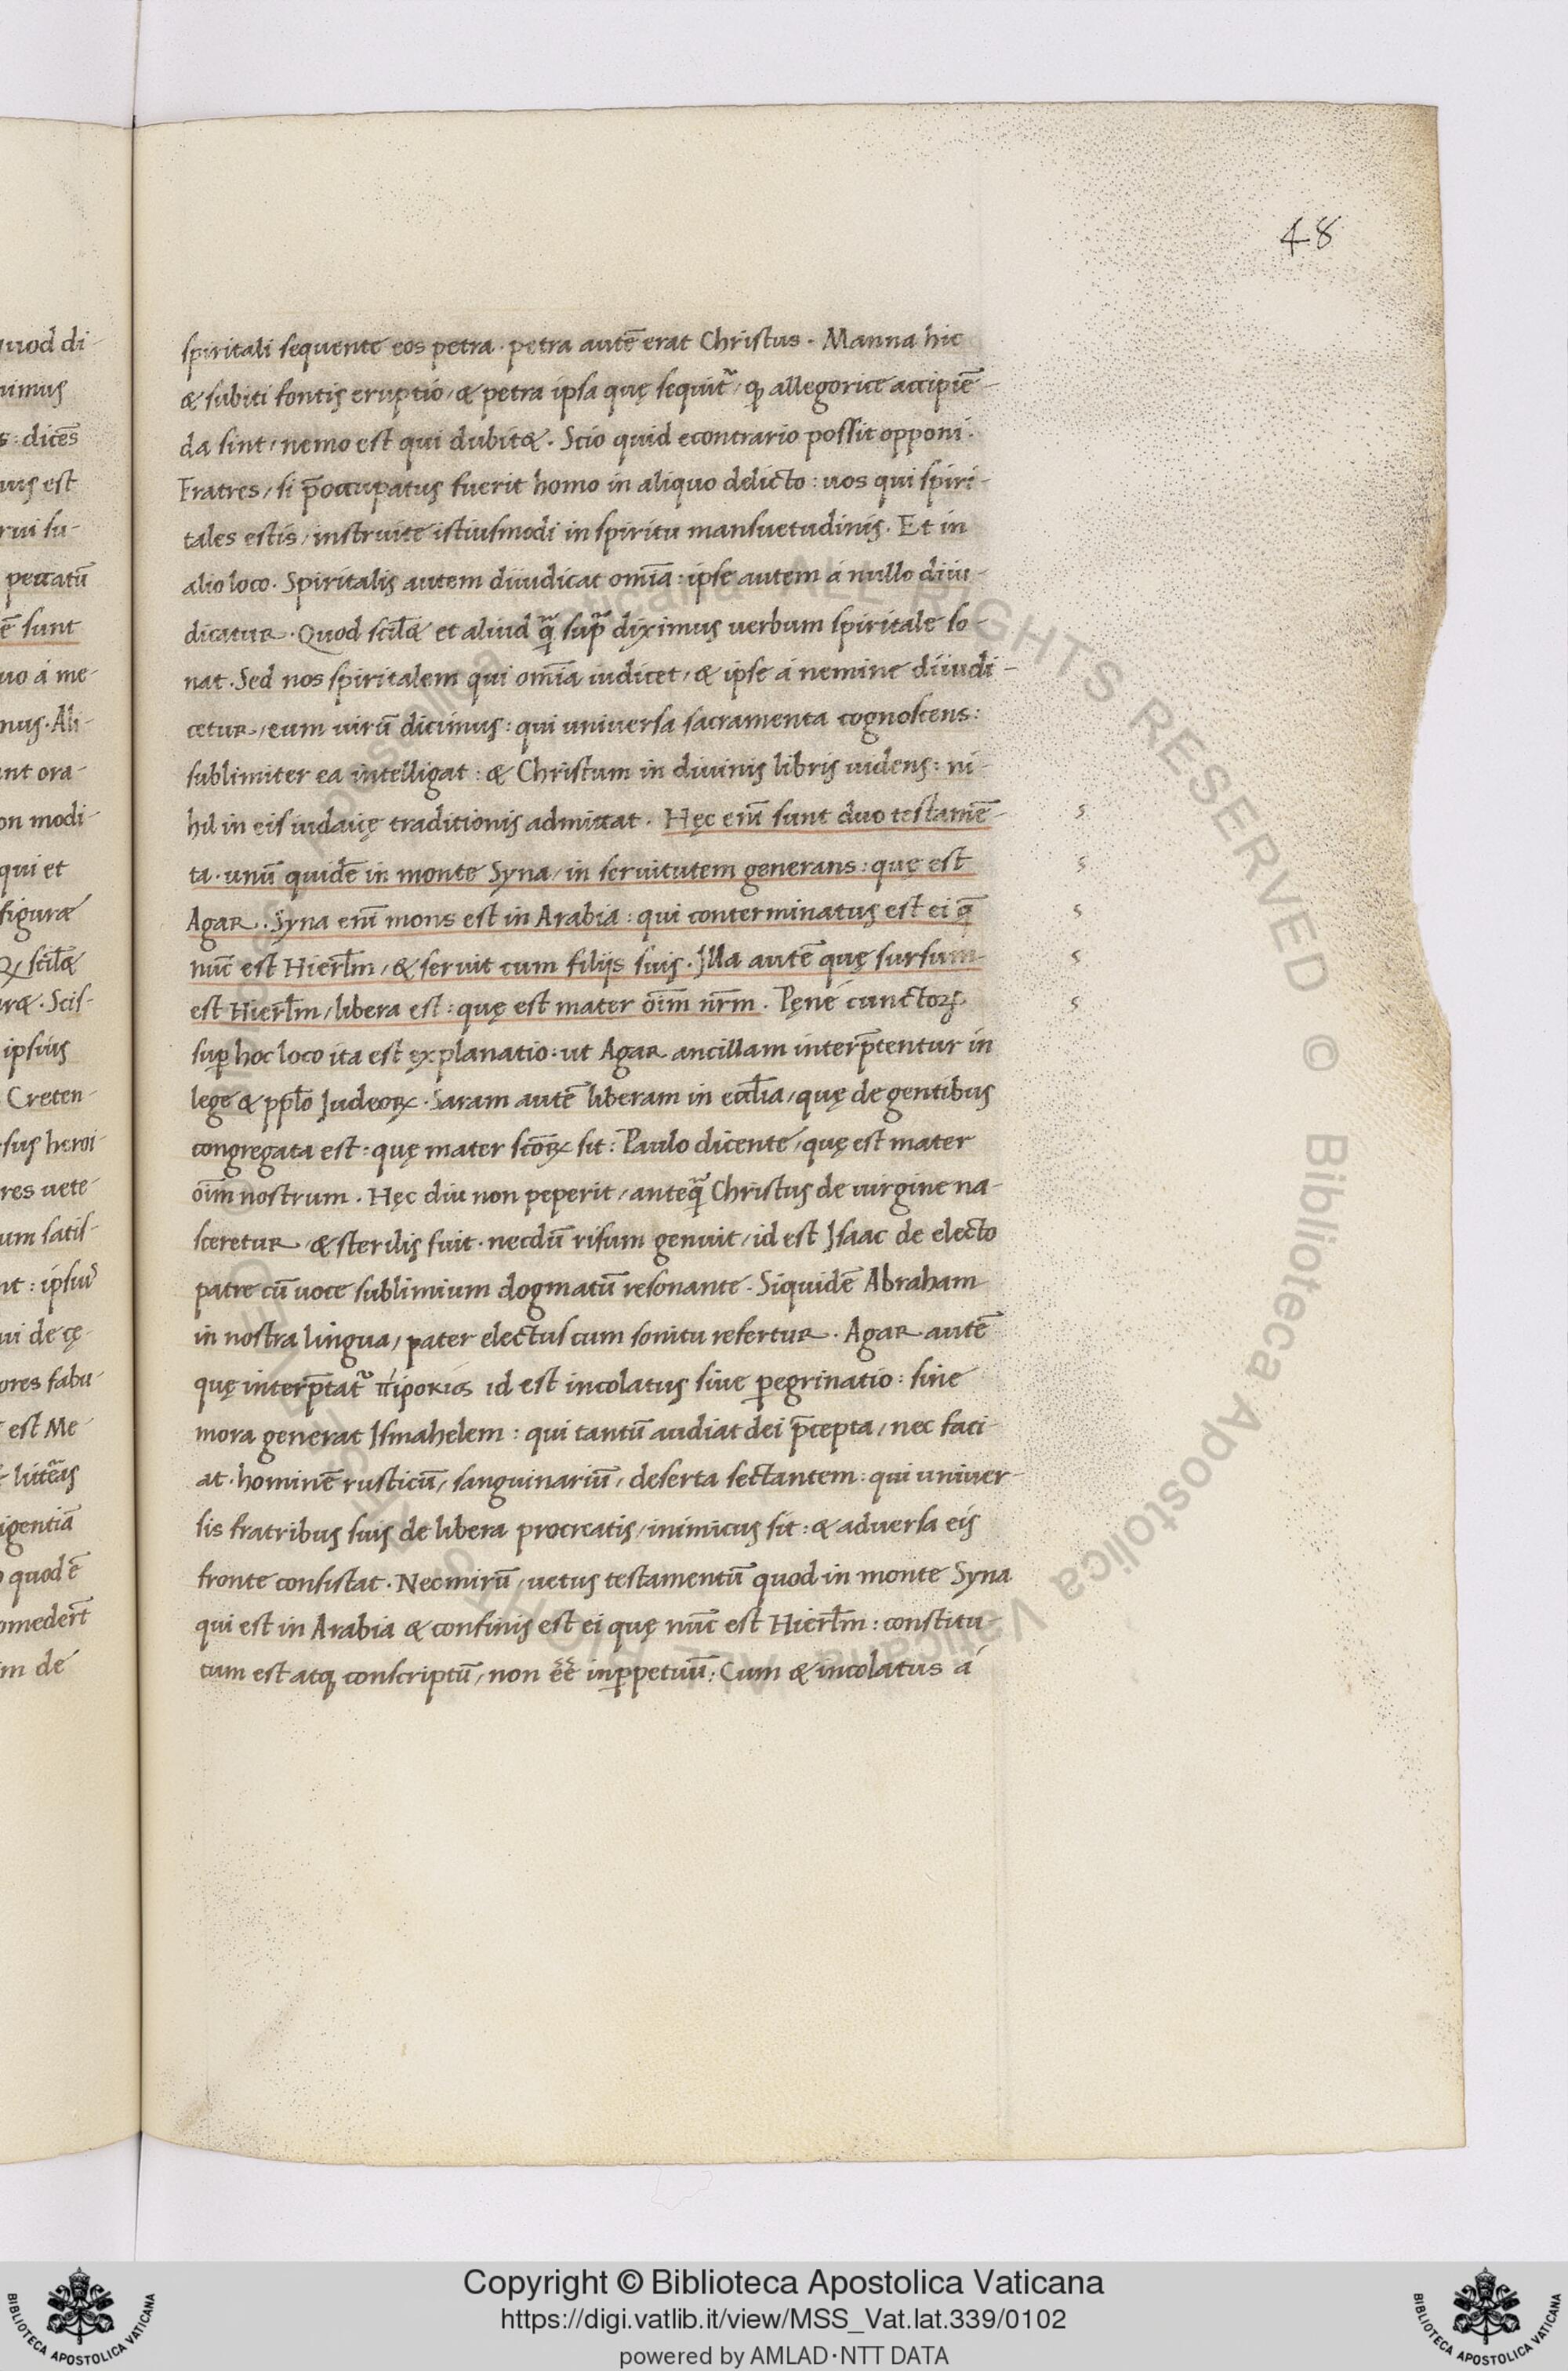 48
spiritali sequente eos petra · petra autē erat Christus · Manna hic
& subiti fontis eruptio / & petra ipsa quę sequit᷑ / ꝙ allegorice accipiē-
da sint / nemo est qui dubit& · Scio quid econtrario possit opponi ·
Fratres / si p̄occupatus fuerit homo in aliquo delicto : uos qui spiri-
tales estis / instruite istiusmodi in spiritu mansuetudinis · Et in
alio loco · Spiritalis autem diiudicat omīa : ipse autem á nullo diiu-
dicatur · Quod scil̄& et aliud q̄ᷓ sup̄ᷓ diximus uerbum spiritale so-
nat · Sed nos spiritalem qui omīa iudicet / & ipse á nemine diiudi-
cetur / eum uirū dicimus : qui universa sacramenta cognoscens :
sublimiter ea intelligat : & Christum in divinis libris uidens : ni-
hil in eis iudaicę traditionis admittat · Hęc enī sunt duo testamē-
ta · unū quidē in monte Syna / in servitutem generans : quę est
Agar · Syna enī mons est in Arabia : qui conterminatus est ei q̄
nūc est Hierl̄m / & servit cum filijs suis · Illa autē quę sursum
est Hierl̄m / libera est : quę est mater oīm nr̄m · Pęne cunctoꝝ
suꝑ hoc loco ita est explanatio : ut Agar ancillam interp̄tentur in
lege & ppl̄o Iudeoꝝ · Saram autē liberam in eccl̄ia / quę de gentibus
congregata est · quę mater scōꝝ sit : Paulo dicente / quę est mater
oīm nostrum · Hęc diu non peperit / anteqᷓ Christus de uirgine na-
sceretur / & sterilis fuit · necdū risum genuit / id est Isaac de electo
patre cū uoce sublimium dogmatū resonante · Siquidē Abraham
in nostra lingua / pater electus cum sonitu refertur · Agar autē
quę interp̄tat᷑ id est incolatus siue ꝑegrinatio : sine
mora generat Ismahelem : qui tantū audiat dei p̄cepta / nec faci-
at · hominē rusticū / sanguinariū / deserta sectantem : qui univer-
sis fratribus suis de libera procreatis / inimicus sit : & adversa eis
fronte consistat · Nec mirū / uetus testamentū quod in monte Syna
qui est in Arabia & confinis est ei quę nūc est Hierl̄m : constitu-
tum est atqꝫ conscriptū / non ēē inꝑpetuū : Cum & incolatus á
s
s
s
s
s
uod di-
s : dicēs
us est
rui su-
peccatū
ē sunt
uo á me-
nus · Ali-
nt ora-
on modi-
qui et
figuræ
ꝝ scil̄&
ræ · Scis-
ipsius
Creten-
sus heroi-
res uete-
um satis-
ui de cę-
ores fabu-
est Me-
igentiā
quod ē
im de
Copyright © Biblioteca Apostolica Vaticana
https://digi.vatlib.it/view/MSS_Vat.lat.339/0102
powered by AMLAD·NTT DATA
BIBLIOTECA APOSTOLICA VATICANA
BIBLIOTECA APOSTOLICA VATICANA
ALL RIGHTS RESERVED © Biblioteca Apostolica Vaticana